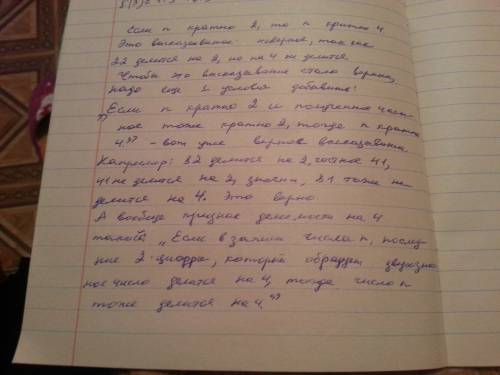 Если n кратно 2, то n кратно 4
Это высказывание неверное, так как
22 делится на 2, но на 4 не делится.
Чтобы это высказывание стало верным,
надо еще 1 условия добавить:
„Если n кратно 2 и полученное част-
ное тоже кратно 2, тогда n кратно
4" - вот уже верное высказывание
Например: 82 делится на 2, частное 41,
41 не делится на 2, значит, 81 тоже не
делится на 4. Это верно.
А вообще признак делимости на 4
такой: „Если в записи числа n, послед-
ние 2 цифры, которые образуют двузнач-
ное число делится на 4, тогда число n
тоже делится на 4."